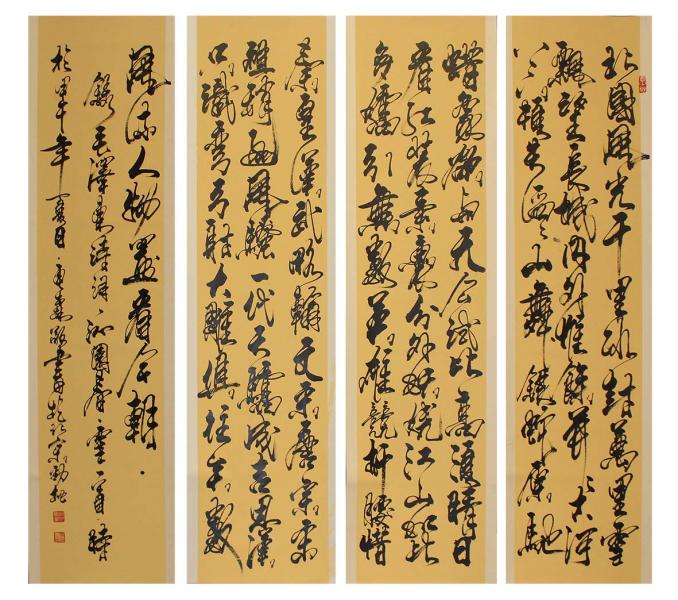 北國風光千里冰封萬里雪
飄望長城內外惟餘莽々大河
上下頓失滔々山舞銀蛇原馳
蠟象欲與天公試比高須晴日
看紅裝素裹分外妖嬈江山如此
多嬌引無數英雄競折腰惜
秦皇漢武略輸文采唐宗宋
祖稍遜風騷一代天驕成吉思漢
只識彎弓射大雕俱往矣數
風流人物還看今朝
錄毛澤東詩詞沁園春雪一首
於甲午年夏日